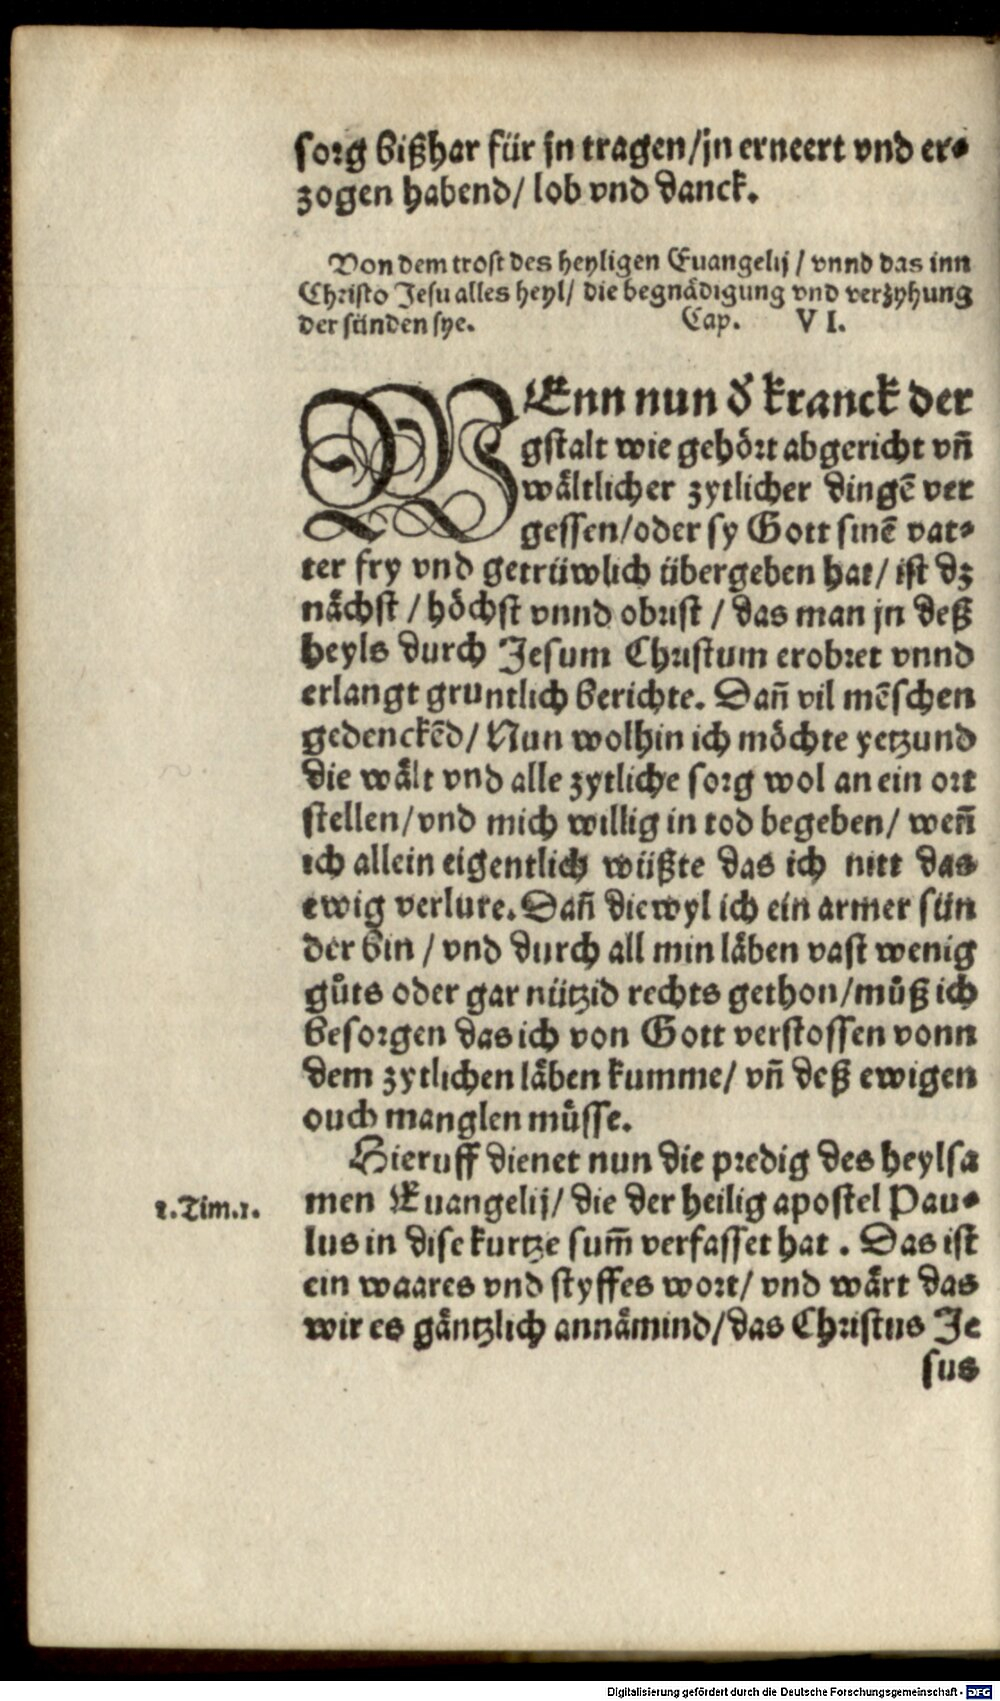 sorg bißhar für jn tragen/jn erneert vnd er-
zogen habend/ lob vnd danck.
Von dem trost des heyligen Euangelij / vnnd das inn
Christo Jesu alles heyl/ die begnådigung vnd verzyhung
der sünden sye. Cap. VI.
WEnn nun ď kranck der
gstalt wie gehört abgericht vñ
wåltlicher zytlicher dingē ver
gessen/oder sy Gott sinē vat-
ter fry vnd getrüwlich übergeben hat/ ist dz
nåchst / höchst vnnd obrist / das man jn deß
heyls durch Jesum Christum erobret vnnd
erlangt gruntlich berichte. Dañ vil mēschen
gedenckēd/ Nun wolhin ich möchte yetzund
die wålt vnd alle zytliche sorg wol an ein ort
stellen/vnd mich willig in tod begeben/ weñ
ich allein eigentlich wüßte das ich nitt das
ewig verlure. Dañ diewyl ich ein armer sün
der bin / vnd durch all min låben vast wenig
gůts oder gar nützid rechts gethon/můß ich
besorgen das ich von Gott verstossen vonn
dem zytlichen låben kumme/ vñ deß ewigen
ouch manglen müsse.
Hieruff dienet nun die predig des heylsa
1.Tim.1. men Euangelij/ die der heilig apostel Pau-
lus in dise kurtze sum̄ verfasset hat . Das ist
ein waares vnd styffes wort/ vnd wårt das
wir es gåntzlich annåmind/das Christus Je
sus
Digitalisierung gefördert durch die Deutsche Forschungsgemeinschaft - DFG